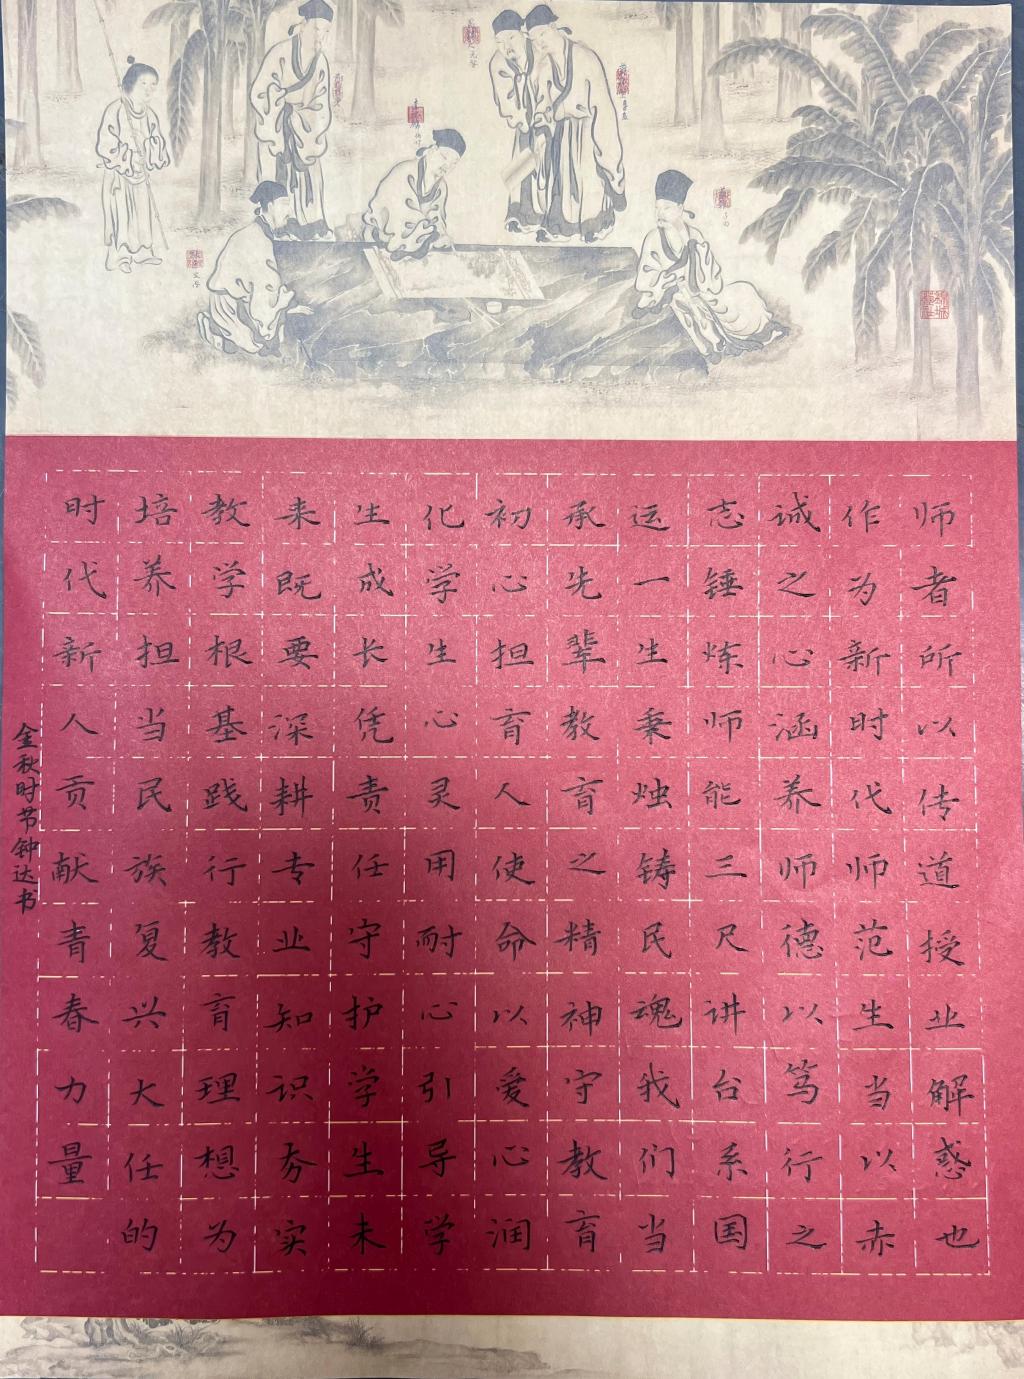 师者所以传道授业解惑也
作为新时代师范生当以赤
诚之心涵养师德以笃行之
志锤炼师能三尺讲台系国
运一生秉烛铸民魂我们当
承先辈教育之精神守教育
初心担育人使命以爱心润
化学生心灵用耐心引导学
生成长凭责任守护学生未
来既要深耕专业知识夯实
教学根基践行教育理想为
培养担当民族复兴大任的
时代新人贡献青春力量
金秋时节钟达书